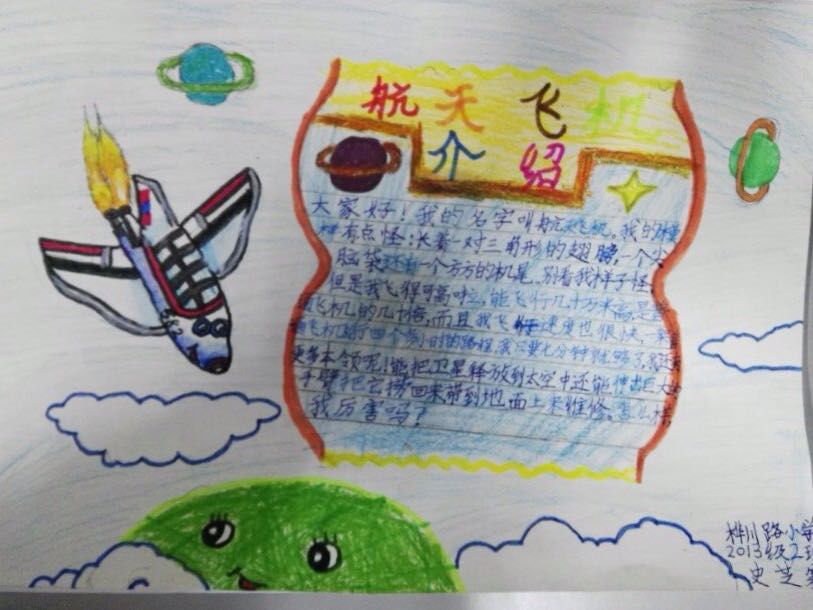 航天飞机
介绍
大家好！我的名字叫航天飞机。我的模
样有点怪：长着一对三角形的翅膀，一个尖
脑袋还有一个方方的机尾。别看我样子怪，
但是我飞得可高啦，能飞行几十万米高，是
飞机的几十倍，而且我飞行速度也很快，
飞机的四个小时的路程，我只要七分钟就够了。我还有
更多本领呢！能把卫星释放到太空中还能伸出巨大的
手臂把它捞回来带到地面上来维修。怎么样，
我厉害吗？
桦川路小学
2013级2班
史芝